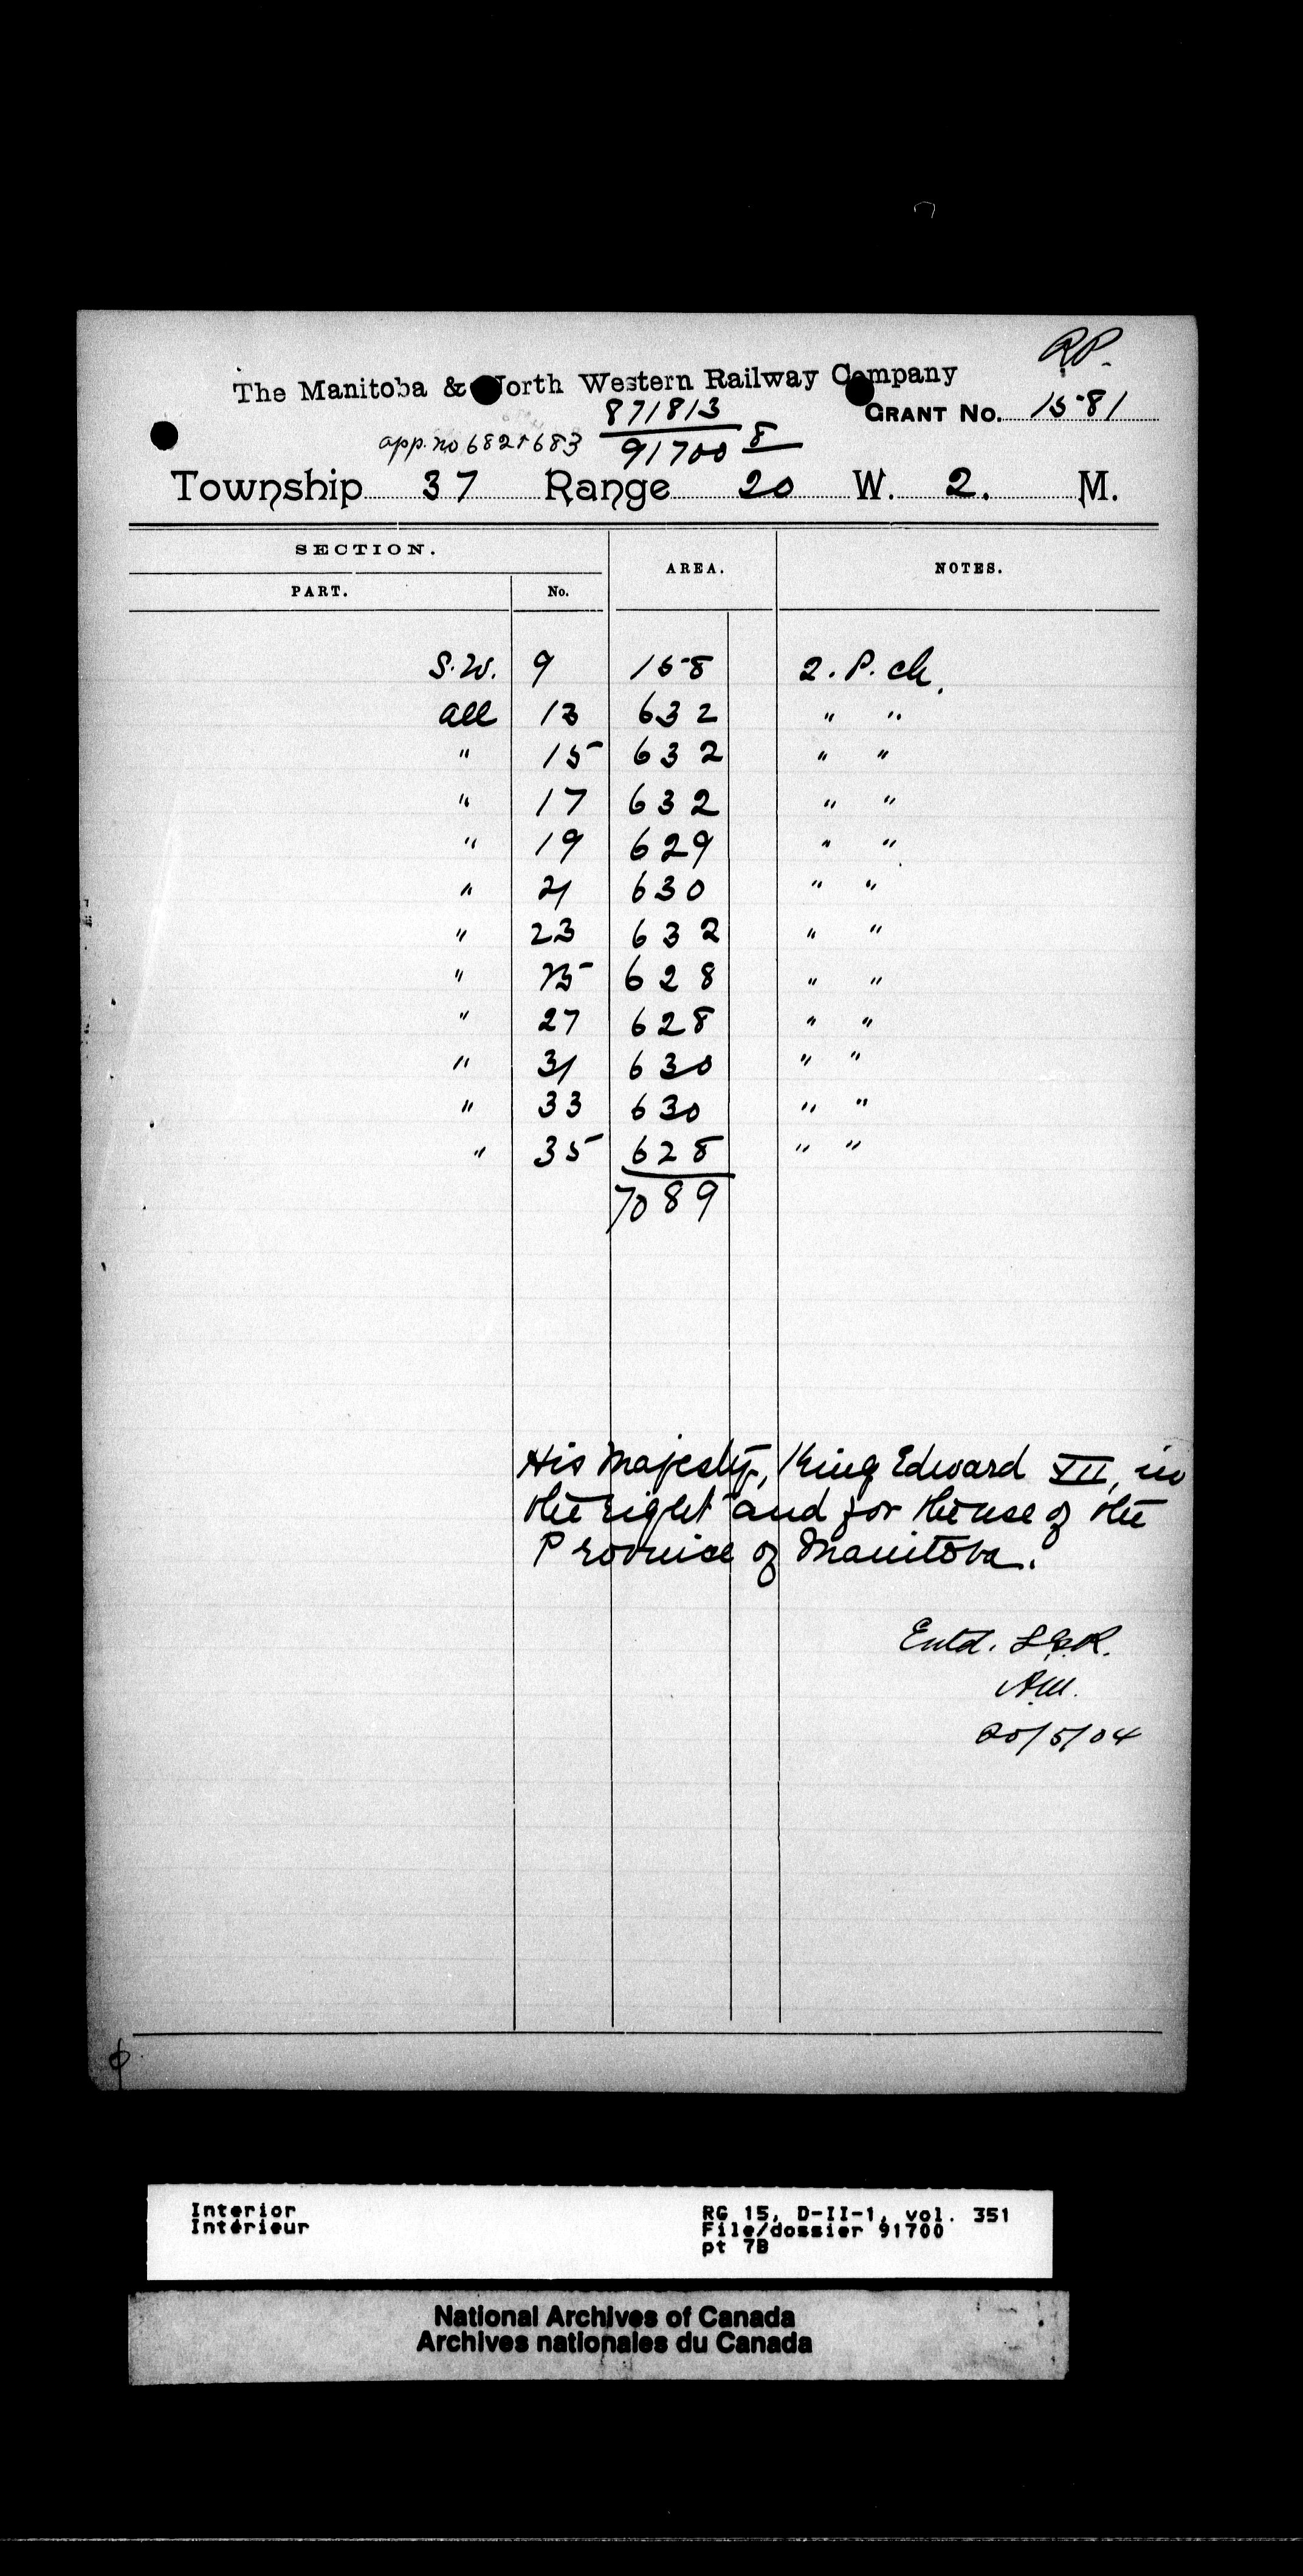 RP.
The Manitoba & North Western Railway Company
871813
GRANT No. 1581
app. no 682 & 683
91700 8
Township 37 Range 20 W. 2. M.
SECTION.
AREA.
NOTES.
PART.
No.
S.W. 9 158 2. P. ch.
all 13 632 " "
" 15 632 " "
" 17 632 " "
" 19 629 " "
" 21 630 " "
" 23 632 " "
" 25 628 " "
" 27 628 " "
" 31 630 " "
" 33 630 " "
" 35 628 " "
7089
His Majesty, King Edward VII, in
the right and for the use of the
Province of Manitoba.
Entd. L.G.R.
A.M.
20/5/04
Interior
Intérieur
RG 15, D-II-1, vol. 351
File/dossier 91700
pt 7B
National Archives of Canada
Archives nationales du Canada